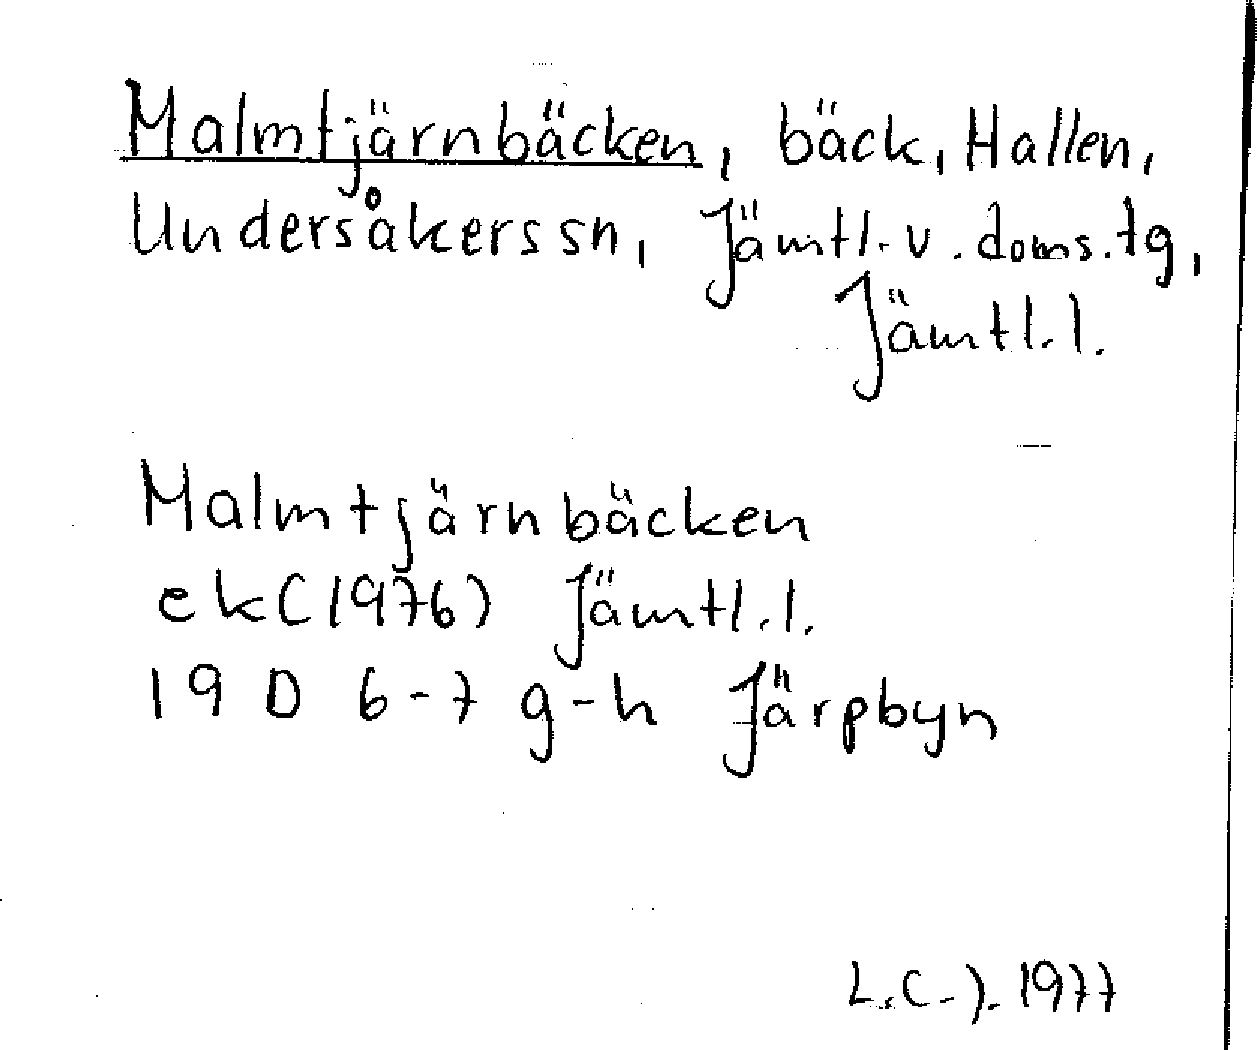 Malmtjärnbäcken, bäck, Hallen,
Undersåkers sn, Jämtl. v. doms. tg,
Jämtl. l.
Malmtjärnbäcken
ek (1976) Jämtl. l.
19 D 6-7 g-h Järpbyn
L.C-J. 1977